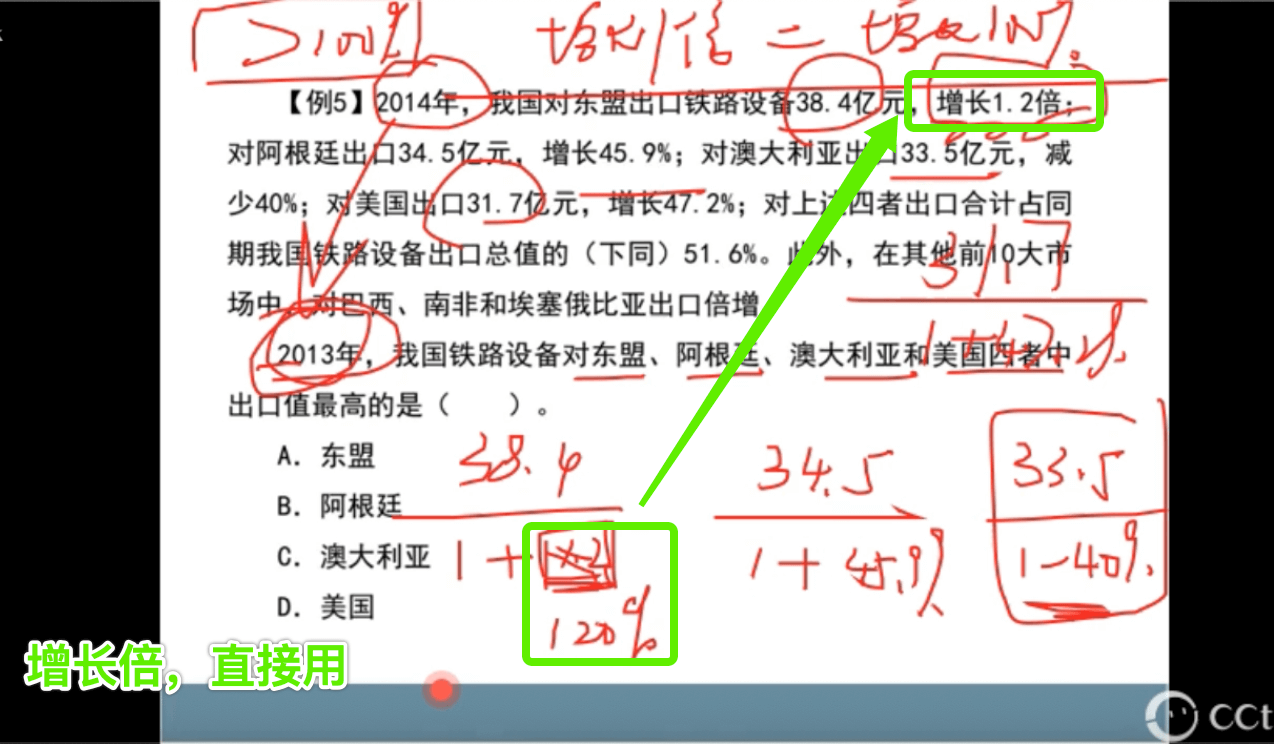 >100%
增长1倍 = 增长100%
【例5】2014年，我国对东盟出口铁路设备38.4亿元，增长1.2倍；
对阿根廷出口34.5亿元，增长45.9%；对澳大利亚出口33.5亿元，减
少40%；对美国出口31.7亿元，增长47.2%；对上述四者出口合计占同
期我国铁路设备出口总值的（下同）51.6%。此外，在其他前10大市
场中，对巴西、南非和埃塞俄比亚出口倍增
31.7
2013年，我国铁路设备对东盟、阿根廷、澳大利亚和美国四者中
出口值最高的是（　　）。
A. 东盟
38.4
34.5
33.5
B. 阿根廷
C. 澳大利亚
1+1.2
1+45.9%
1-40%
D. 美国
120%
增长倍，直接用
CCt